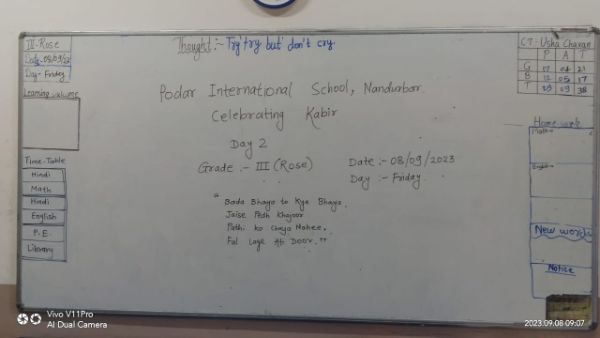 III-Rose
Date:-08/09/23
Day-Friday
Learning outcome
Time-Table
Hindi
Math
Hindi
English
P.E.
Library
Thought:- Try try but don't cry
Podar International School, Nandurbar
Celebrating Kabir
Day 2
Grade:- III (Rose)
Date:- 08/09/2023
Day:- Friday
"Bada Bhaya to Kya Bhaya,
Jaise Pedh Khajoor
Pathi ko Chaya Nahee,
Fal Lage Ati Door."
CT-Usha Chavan
P A T
G 17 04 21
B 12 05 17
T 29 09 38
Home-work
Math-
English-
New words
Notice
Vivo V11Pro
AI Dual Camera
2023.09.08 09:07